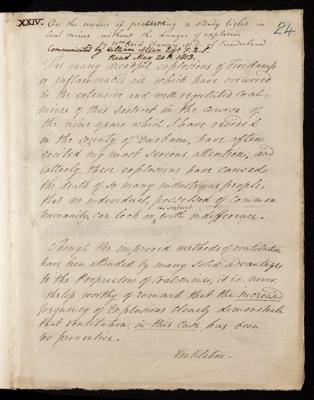 24
XXIV. On the means of procuring a steady light in
Coal mines without the danger of explosion
By Wm Reid Clanny M.D. of Sunderland
Communicated by William Allen Esqr F.R.S.
Read May 20th 1813.
The many dreadful explosions of Firedamps
or inflammable air which have occurred
in the extensive and well regulated Coal-
mines of this District in the course of
the nine years which I have resided
in the county of Durham, have often
excited my most serious attention, and
latterly these explosions have caused
the death of so many industrious people,
that no individual, possessed of common
humanity, can look on with indifference.
Though the improved methods of ventilation
have been attended by many solid advantages
to the Proprietors of Coal mines, it is never-
theless worthy of remark that the increased
frequency of Explosions clearly demonstrate
that ventilation, in this case has been
no preventive.
Ventilation